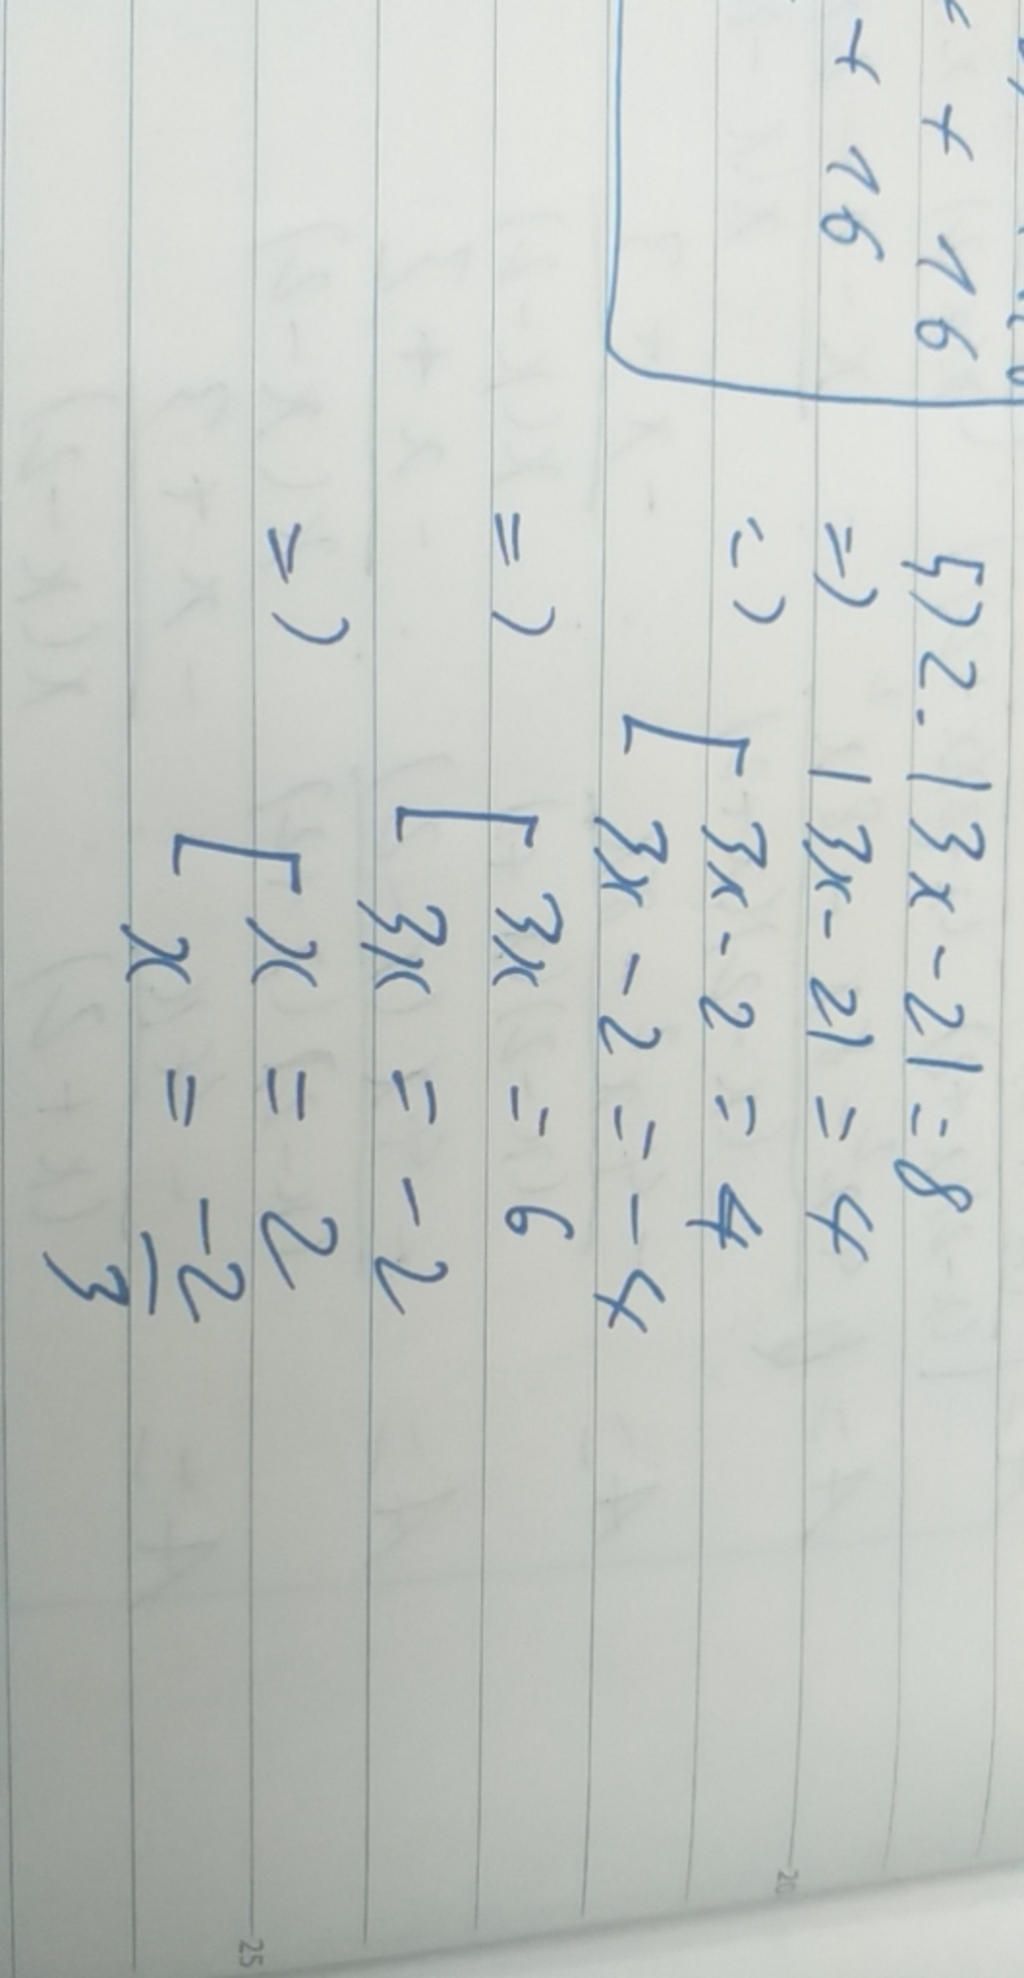 + 16
+ 16
5) 2. |3x - 2| = 8
=) |3x - 2| = 4
=) [ 3x - 2 = 4
3x - 2 = -4
=) [ 3x = 6
3x = -2
=) [ x = 2
x = -2/3
20
25